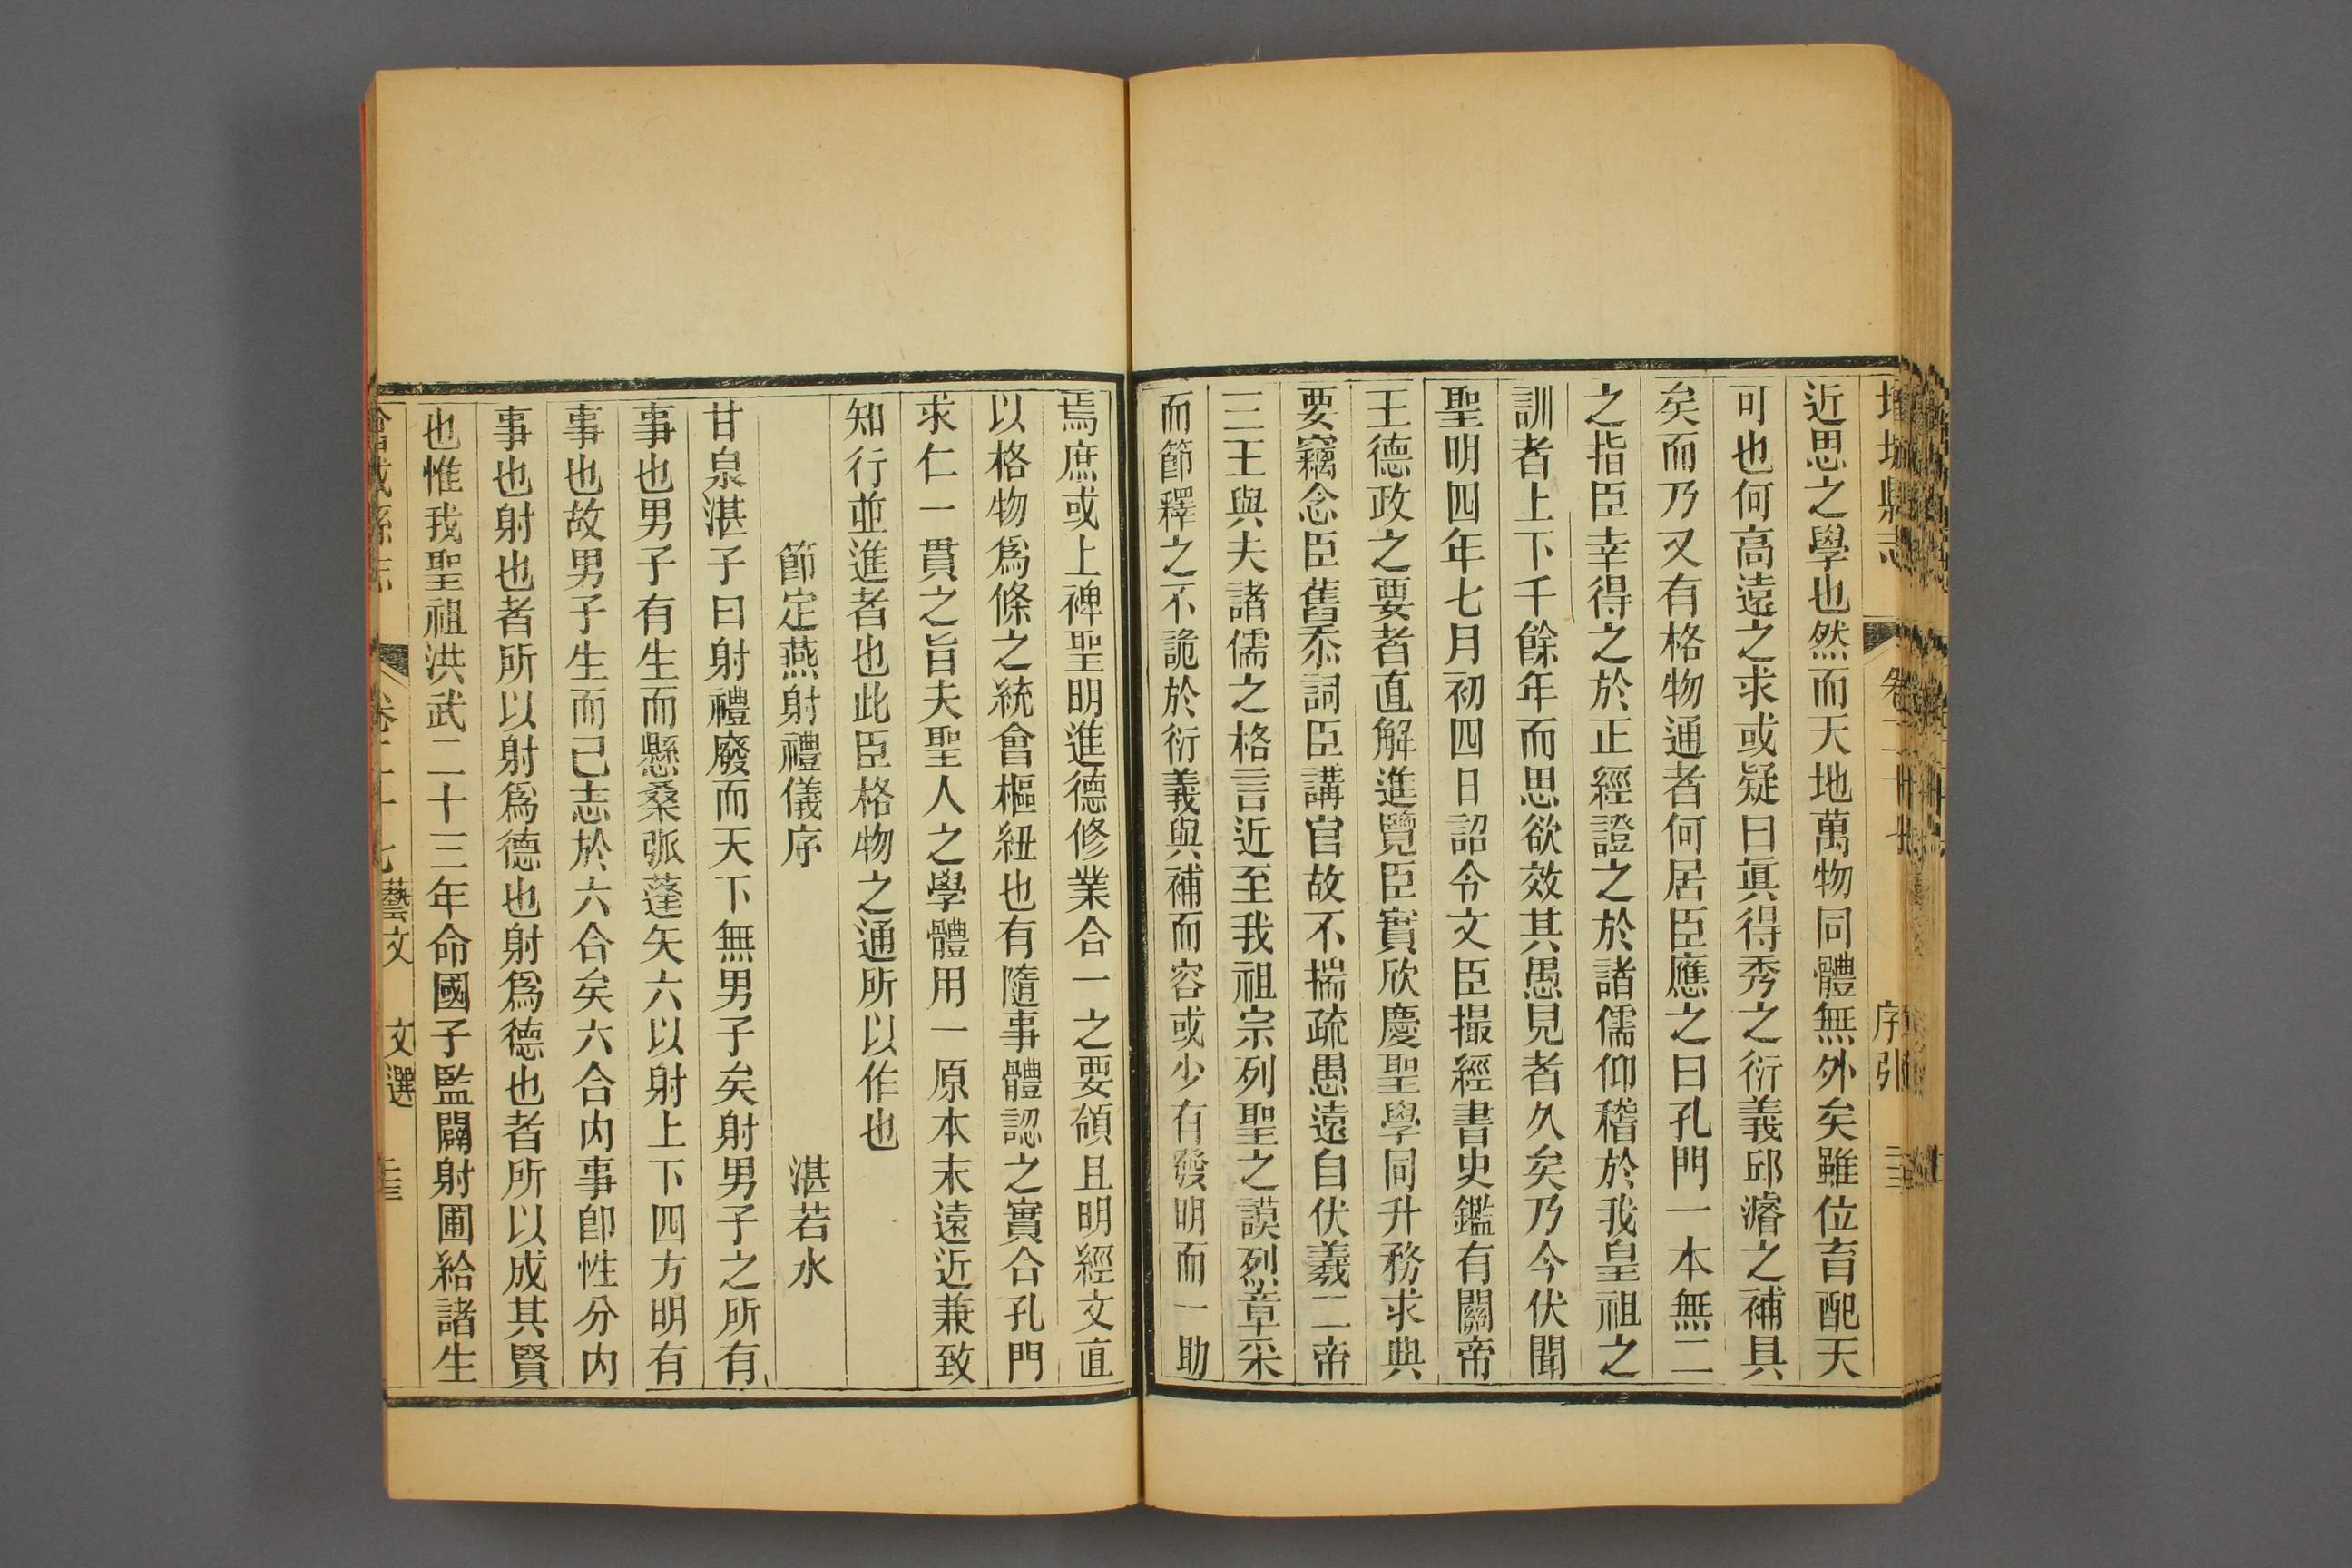 增城縣志 卷二十七 序引
近思之學也然而天地萬物同體無外矣雖位育配天
可也何高遠之求或疑曰眞得秀之衍義邱濬之補具
矣而乃又有格物通者何居臣應之曰孔門一本無二
之指臣幸得之於正經證之於諸儒仰稽於我皇祖之
訓者上下千餘年而思欲效其愚見者久矣乃今伏聞
聖明四年七月初四日詔令文臣撮經書史鑑有關帝
王德政之要者直解進覽臣實欣慶聖學同升務求典
要竊念臣舊忝詞臣講官故不揣疏愚遠自伏羲二帝
三王與夫諸儒之格言近至我祖宗列聖之謨烈章采
而節釋之不詭於衍義與補而容或少有發明而一助
焉庶或上裨聖明進德修業合一之要領且明經文直
以格物爲條之統會樞紐也有隨事體認之實合孔門
求仁一貫之旨夫聖人之學體用一原本末遠近兼致
知行並進者也此臣格物之通所以作也
節定燕射禮儀序 湛若水
甘泉湛子曰射禮廢而天下無男子矣射男子之所有
事也男子有生而懸桑弧蓬矢六以射上下四方明有
事也故男子生而己志於六合矣六合内事卽性分内
事也射也者所以射爲德也射爲德也者所以成其賢
也惟我聖祖洪武二十三年命國子監闢射圃給諸生
增城縣志 卷二十七 藝文 文選